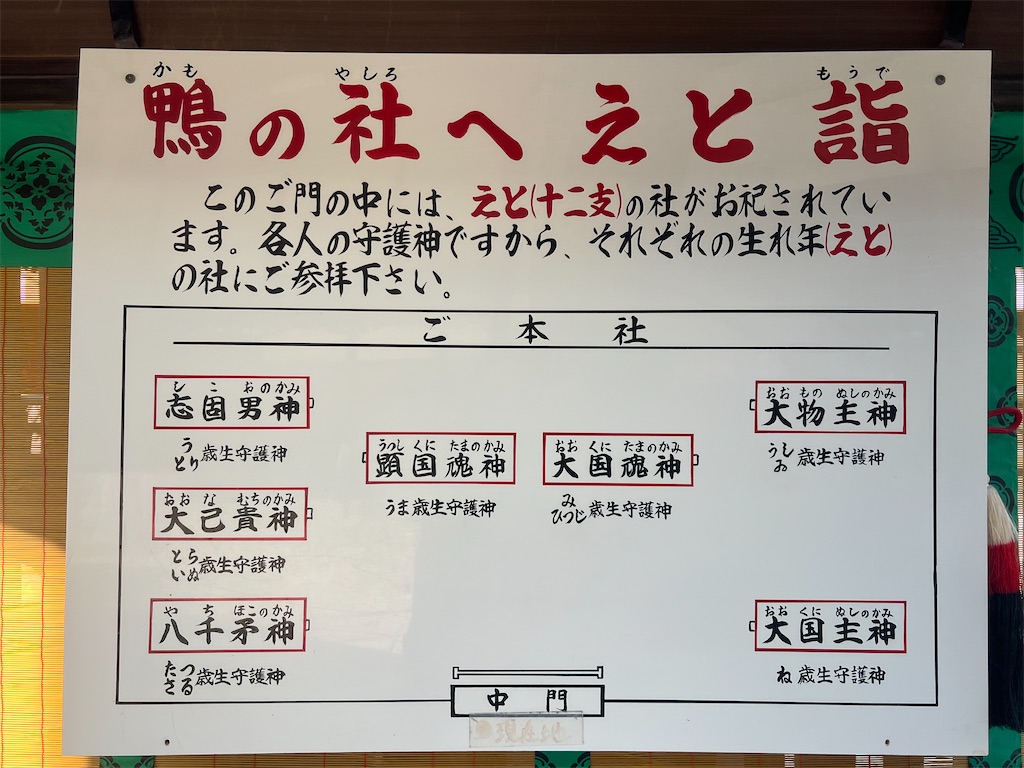 かも やしろ もうで
鴨の社へ えと 詣
このご門の中には、えと(十二支)の社がお祀されてい
ます。各人の守護神ですから、それぞれの生れ年(えと)
の社にご参拝下さい。
ご 本 社
しこおのかみ
志固男神
う とり 歳生守護神
おおなむちのかみ
大己貴神
とら いぬ 歳生守護神
やちほこのかみ
八千矛神
たつ さる 歳生守護神
うつしくにたまのかみ
顕国魂神
うま歳生守護神
おおくにたまのかみ
大国魂神
み ひつじ 歳生守護神
おおものぬしのかみ
大物主神
うし ゐ 歳生守護神
おおくにぬしのかみ
大国主神
ね 歳生守護神
中 門
現在地